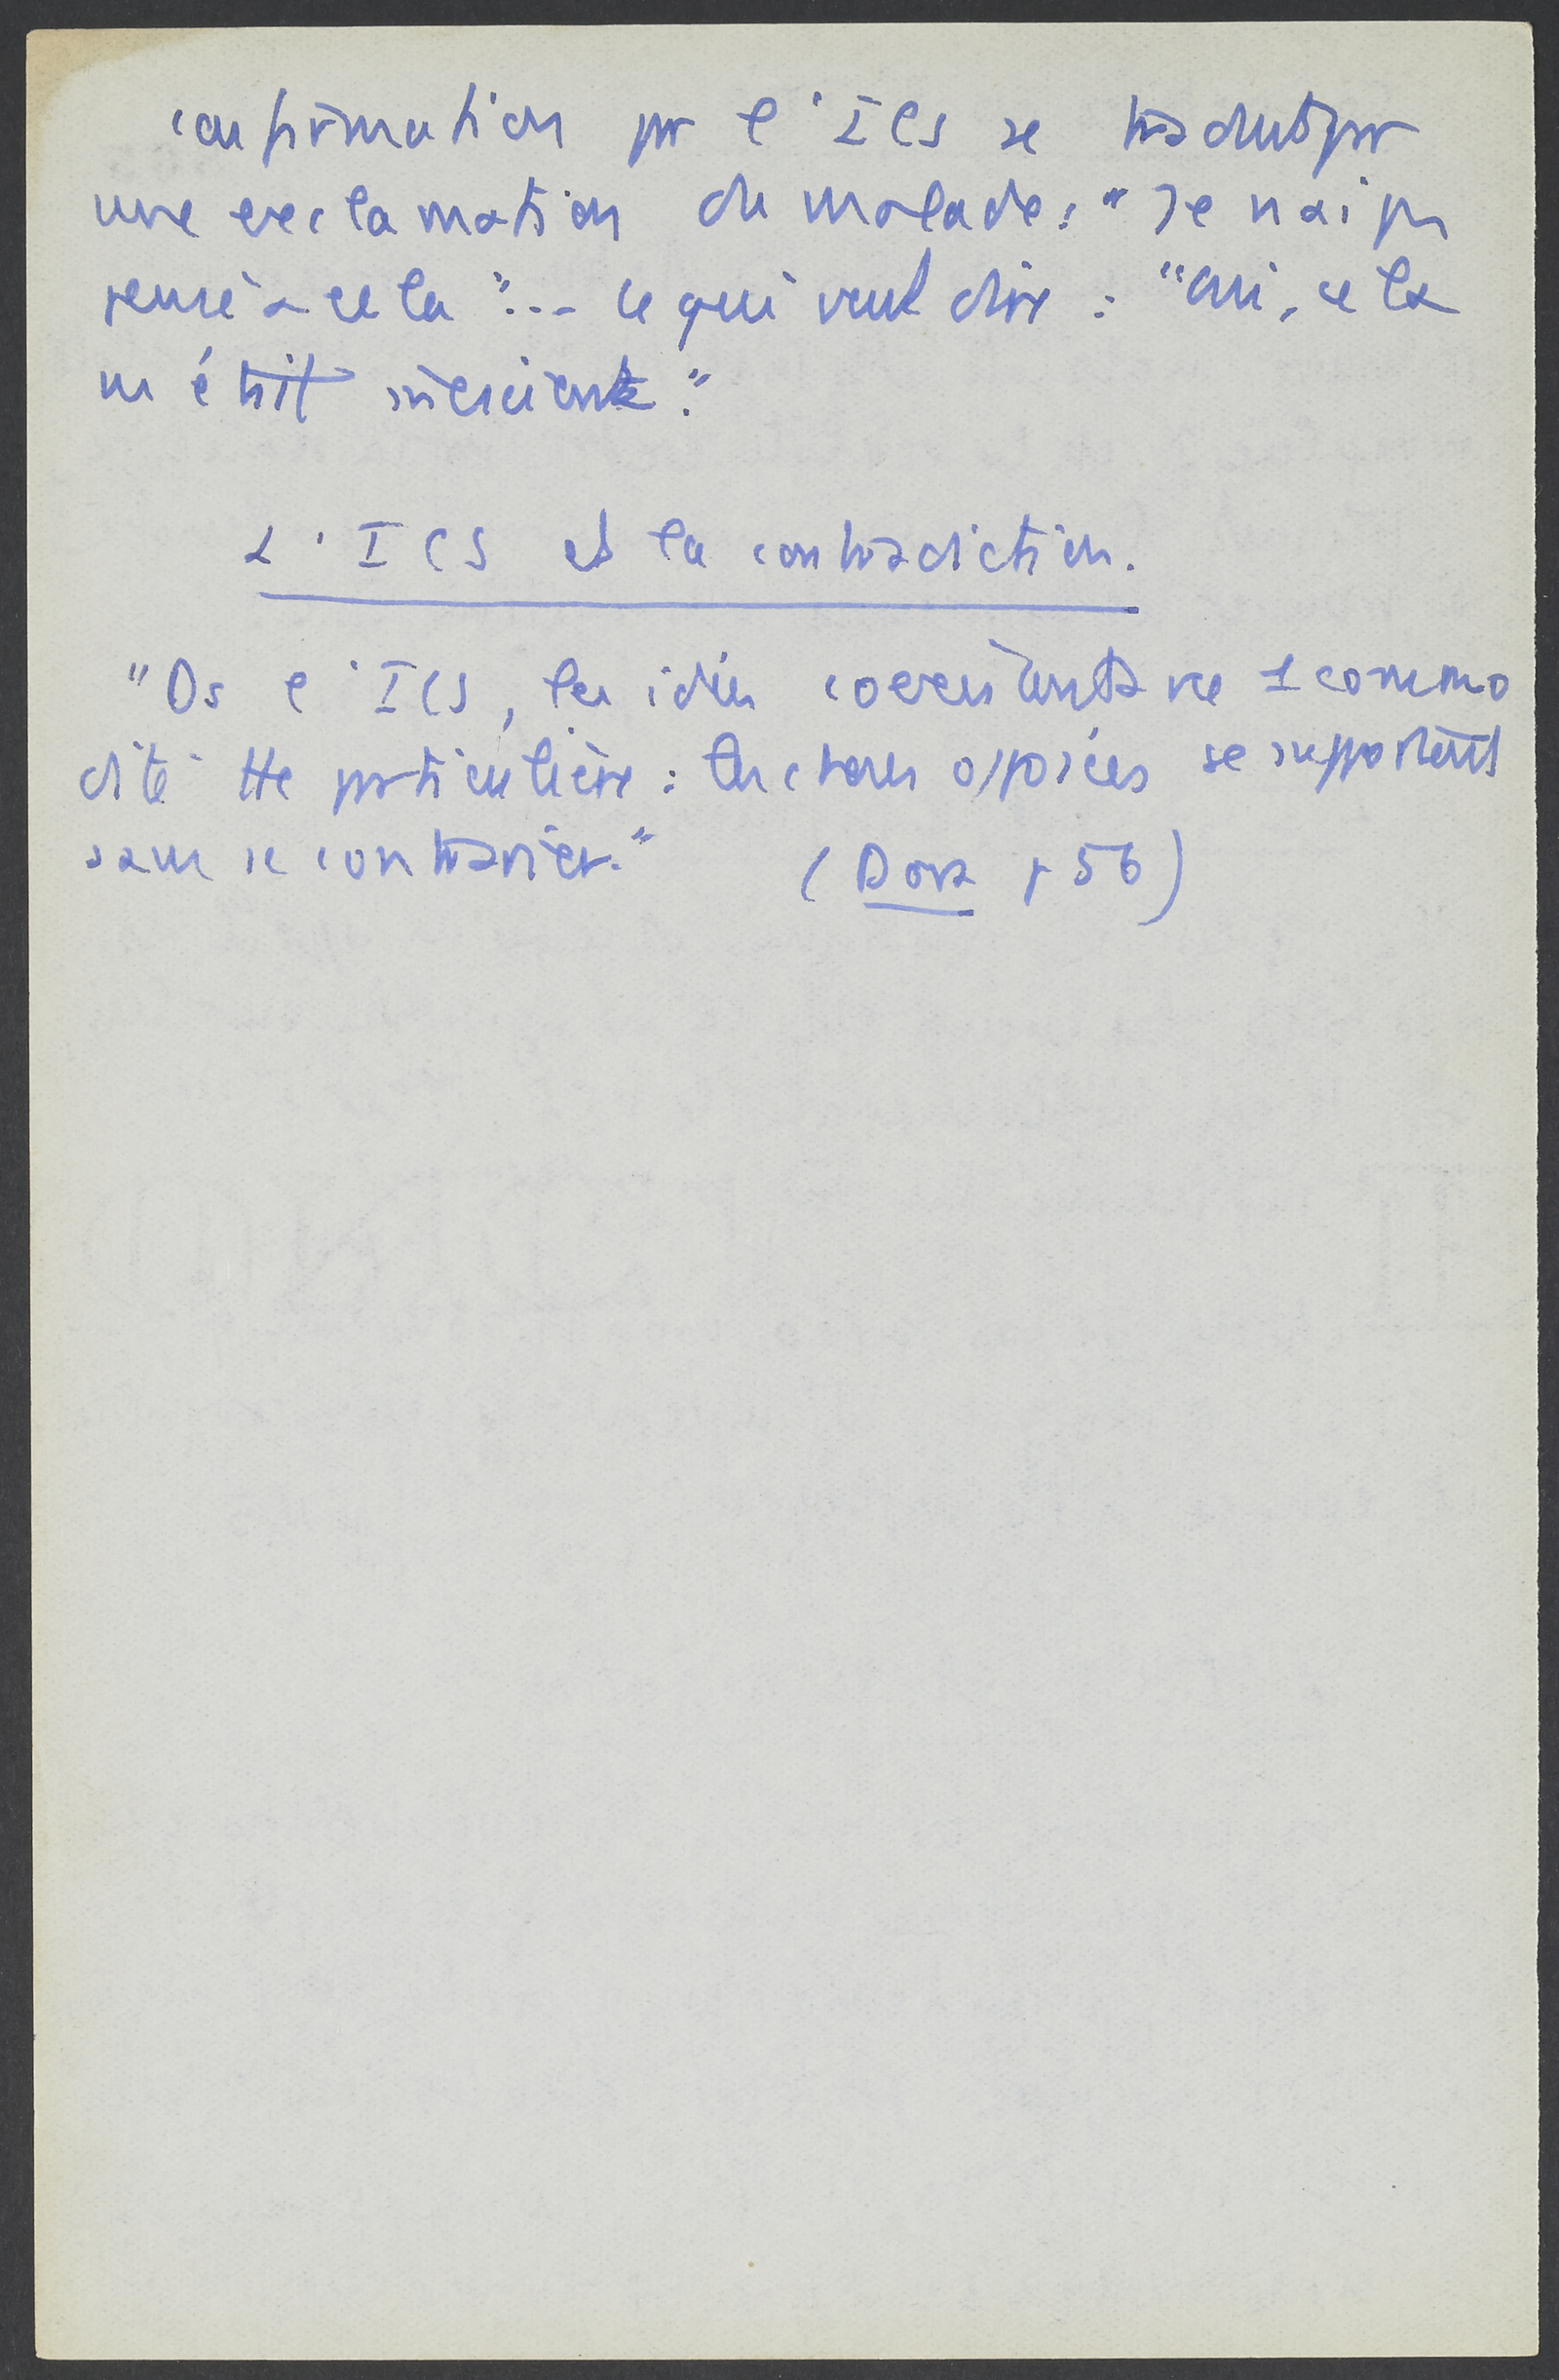 confirmation par l'ICS se traduit par
une exclamation du malade : "Je n'ai pas
pensé à cela"... ce qui veut dire : "Oui, cela
m'était inconscient."
L'ICS et la contradiction.
"Ds l'ICS, les idées coexistent avec 1 commo
dité tte particulière : les choses opposées se supportent
sans se contrarier." (Dora p 56)